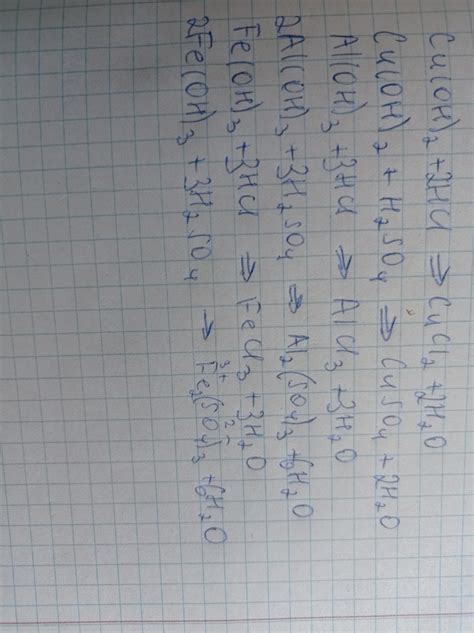 Cu(OH)₂ + 2HCl ⇒ CuCl₂ + 2H₂O
Cu(OH)₂ + H₂SO₄ ⇒ CuSO₄ + 2H₂O
Al(OH)₃ + 3HCl ⇒ AlCl₃ + 3H₂O
2Al(OH)₃ + 3H₂SO₄ ⇒ Al₂(SO₄)₃ + 6H₂O
Fe(OH)₃ + 3HCl ⇒ FeCl₃ + 3H₂O
2Fe(OH)₃ + 3H₂SO₄ → Fe₂³⁺(SO₄)₃²⁻ + 6H₂O